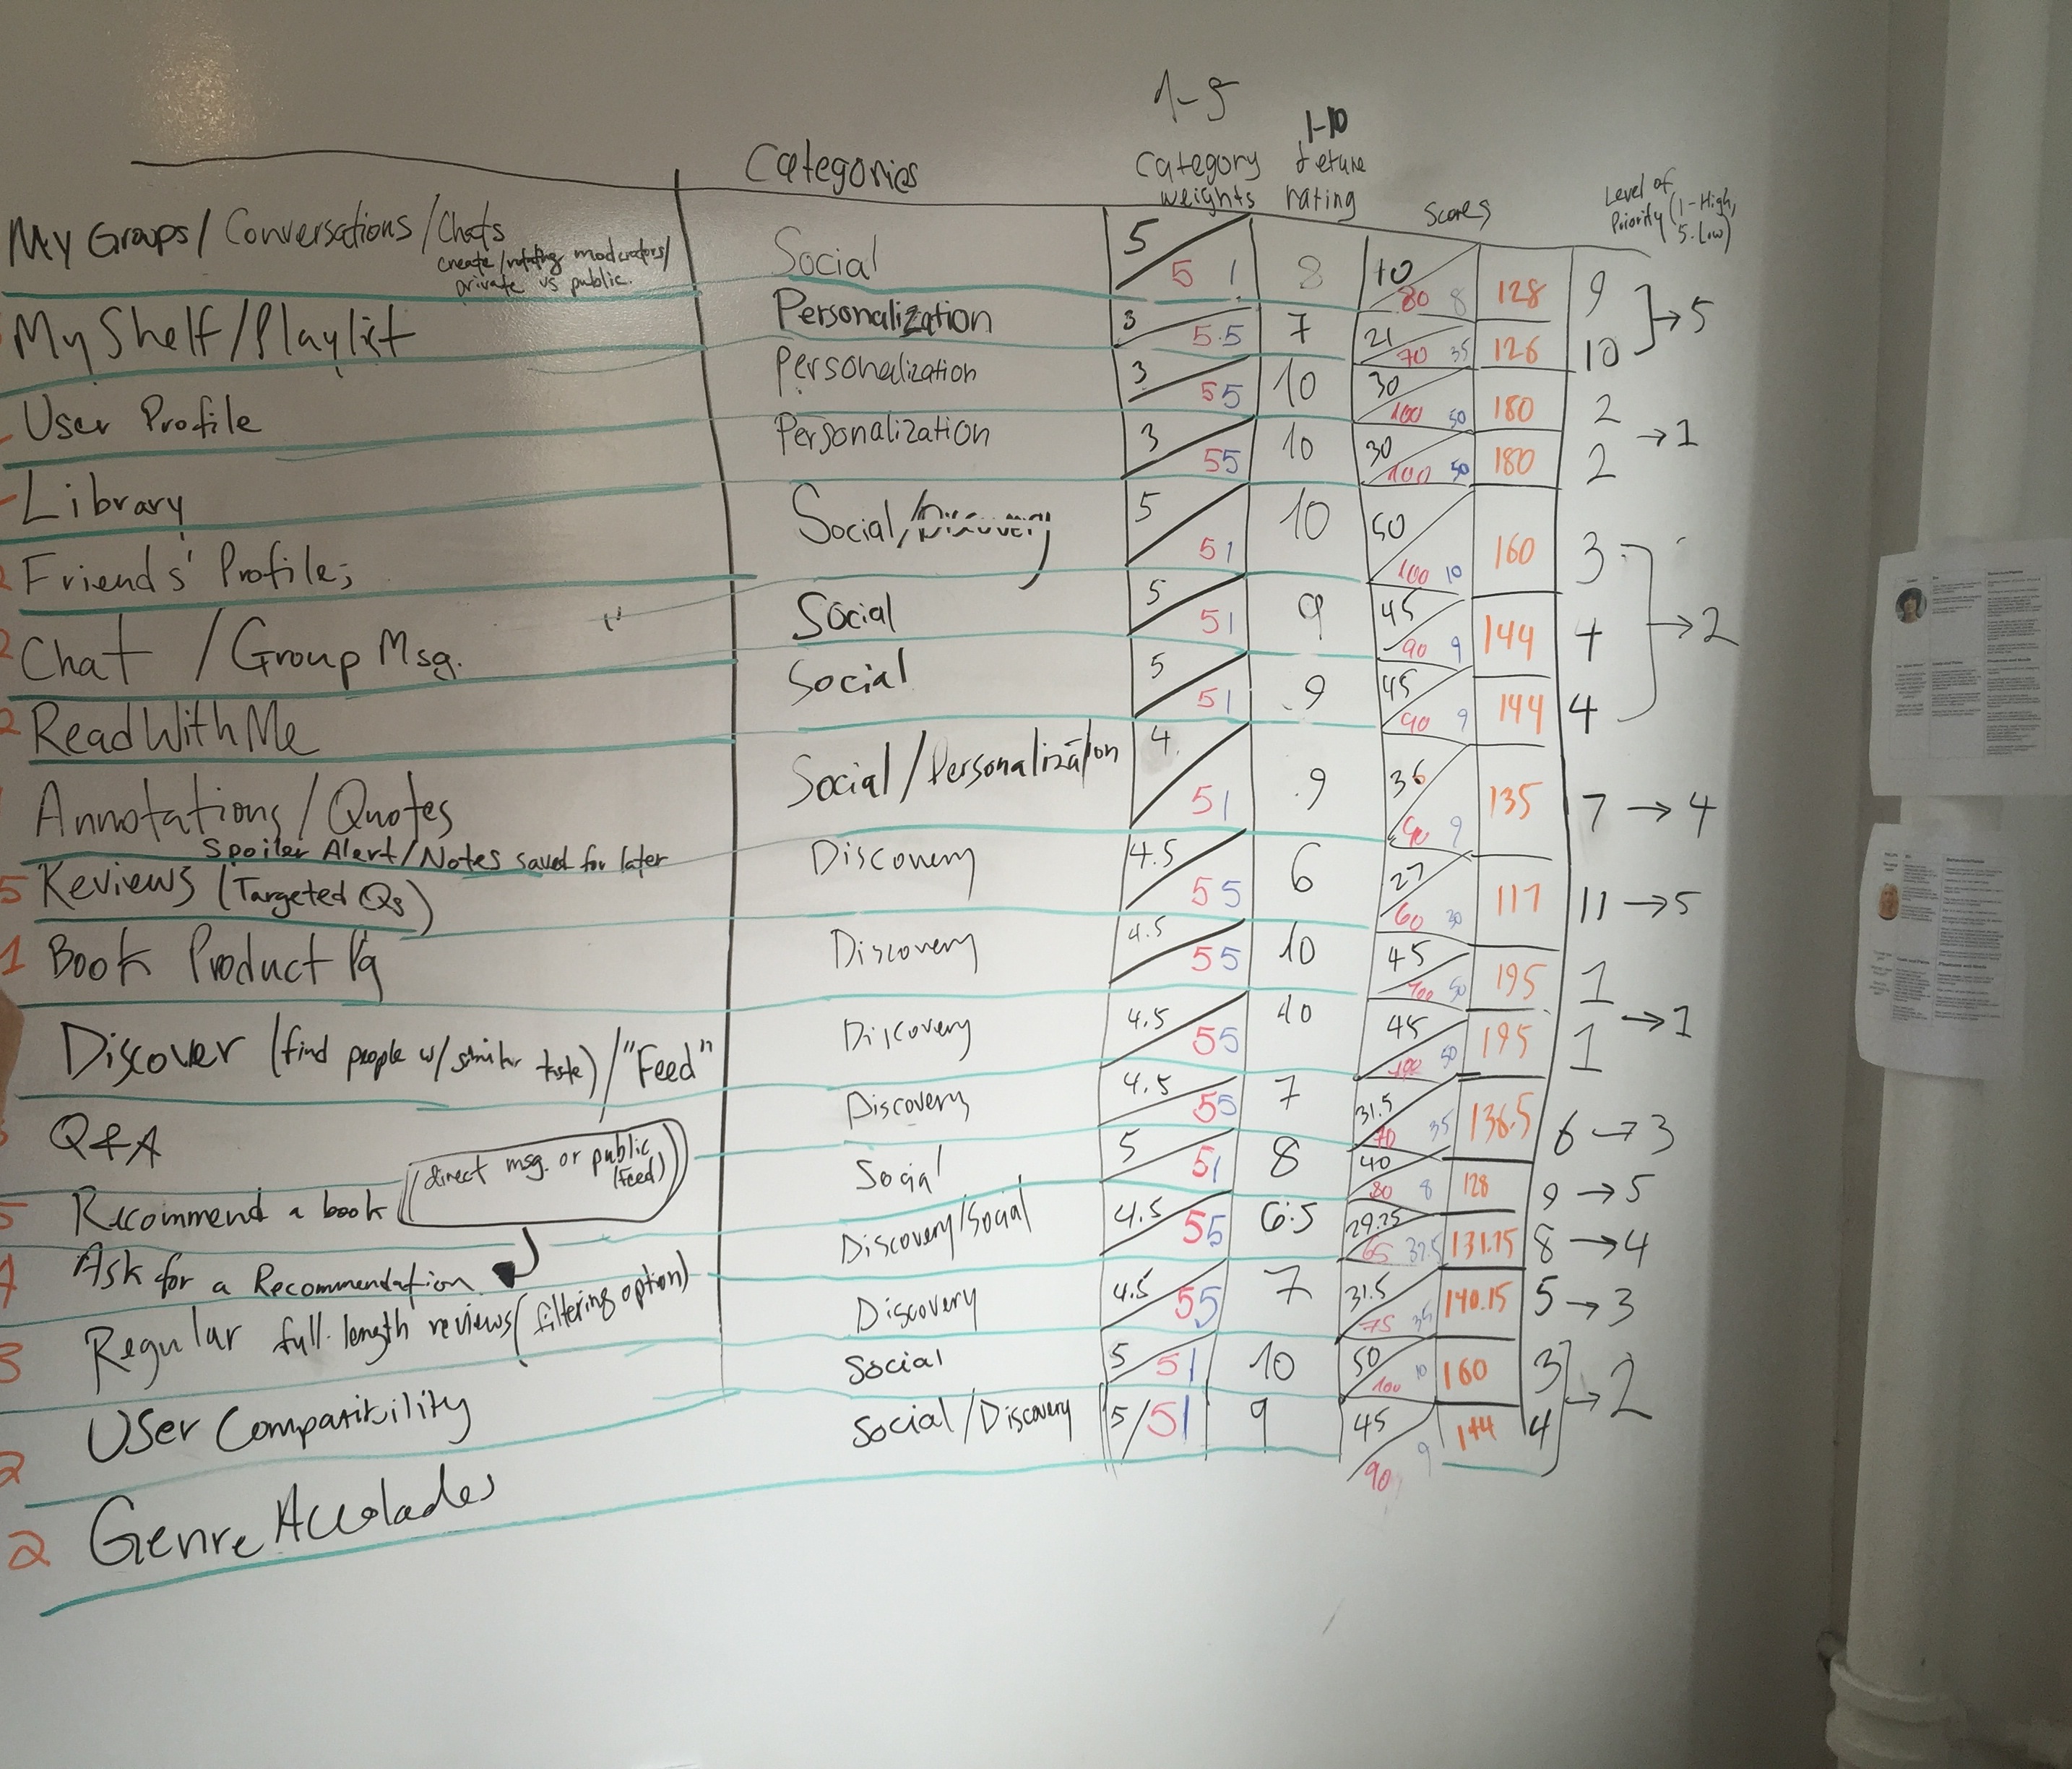 1-5
1-10
Categories
Category weights
feture rating
Scores
Level of Priority (1-High, 5-Low)
My Groups / Conversations / Chats
create / rotating moderators / private vs public.
Social 5 5 1 8 40 80 8 128 9
My Shelf / Playlist
Personalization 3 5.5 7 21 70 35 126 10
→ 5
User Profile
Personalization 3 55 10 30 100 50 180 2
→ 1
Library
Personalization 3 55 10 30 100 50 180 2
2 Friends' Profiles
Social / Discovery 5 51 10 50 100 10 160 3
2 Chat / Group Msg.
Social 5 51 9 45 90 9 144 4
→ 2
2 ReadWithMe
Social 5 51 9 45 90 9 144 4
Annotations / Quotes
Spoiler Alert / Notes saved for later
Social / Personalization 4 51 9 36 90 9 135 7 → 4
5 Reviews (Targeted Qs)
Discovery 4.5 55 6 27 60 30 117 11 → 5
1 Book Product Pg
Discovery 4.5 55 10 45 100 50 195 1
→ 1
Discover (find people w/ similar taste) / "Feed"
Discovery 4.5 55 10 45 100 50 195 1
Q&A
Discovery 4.5 55 7 31.5 70 35 136.5 6 → 3
5 Recommend a book (direct msg. or public (Feed)
Social 5 51 8 40 80 8 128 9 → 5
4 Ask for a Recommendation
Discovery/Social 4.5 55 6.5 29.25 65 32.5 131.75 8 → 4
3 Regular full-length reviews (filtering option)
Discovery 4.5 55 7 31.5 75 35 140.15 5 → 3
2 User Compatibility
Social 5 51 10 50 100 10 160 3
→ 2
2 Genre Accolades
Social / Discovery 5 / 51 9 45 90 9 144 4